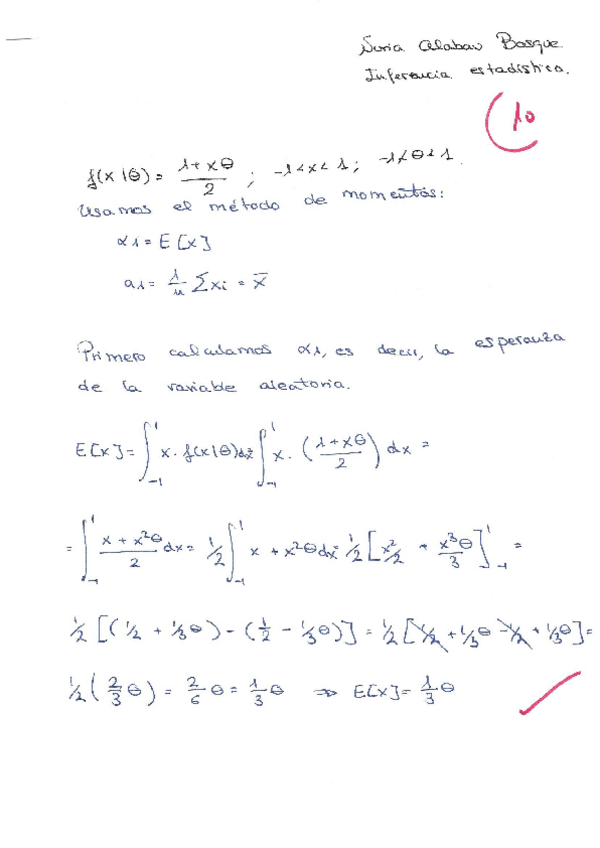 Nuria Alabau Bosque
Inferencia estadística.
10
f(x|θ) = (1+xθ)/2 ; -1<x<1; -1<θ<1.
Usamos el método de momentos:
α1 = E[x]
a1 = 1/n Σxi = x̄
Primero calculamos α1, es decir, la esperanza
de la variable aleatoria.
E[x] = ∫₋₁¹ x·f(x|θ)dx = ∫₋₁¹ x·((1+xθ)/2) dx =
= ∫₋₁¹ (x+x²θ)/2 dx = 1/2 ∫₋₁¹ x+x²θ dx = 1/2 [x²/2 + x³θ/3]₋₁¹ =
1/2 [(1/2 + 1/3θ) - (1/2 - 1/3θ)] = 1/2 [1/2 + 1/3θ - 1/2 + 1/3θ] =
1/2 (2/3 θ) = 2/6 θ = 1/3 θ ⇒ E[x] = 1/3 θ